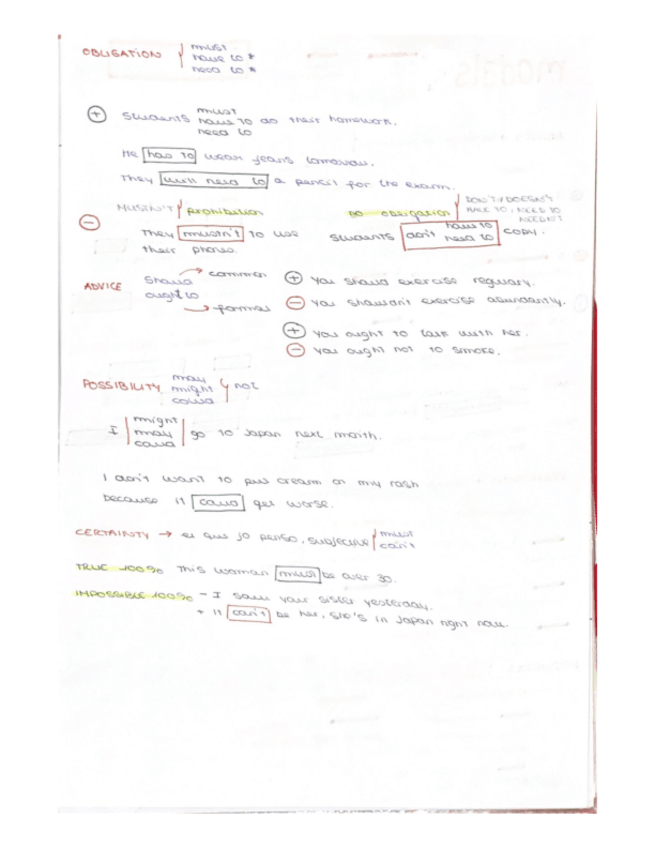 OBLIGATION must
have to *
need to *
+ Students must
have to do their homework.
need to
He has to wear jeans tomorrow.
They will need to a pencil for the exam.
MUSTN'T prohibition
NO obligation DON'T/DOESN'T
HAVE TO / NEED TO
NEEDN'T
- They mustn't to use
their phones.
students don't have to
need to copy.
ADVICE should → common
ought to → formal
+ You should exercise regulary.
- You shouldn't exercise abundantly.
+ You ought to talk with her.
- You ought not to smoke.
POSSIBILITY may
might not
could
I might
may go to Japan next month.
could
I don't want to put cream on my rash
because it could get worse.
CERTAINTY → es que jo penso, subjective must
can't
TRUE 100% This woman must be over 30.
IMPOSSIBLE 100% - I saw your sister yesterday.
+ It can't be her, she's in Japan right now.